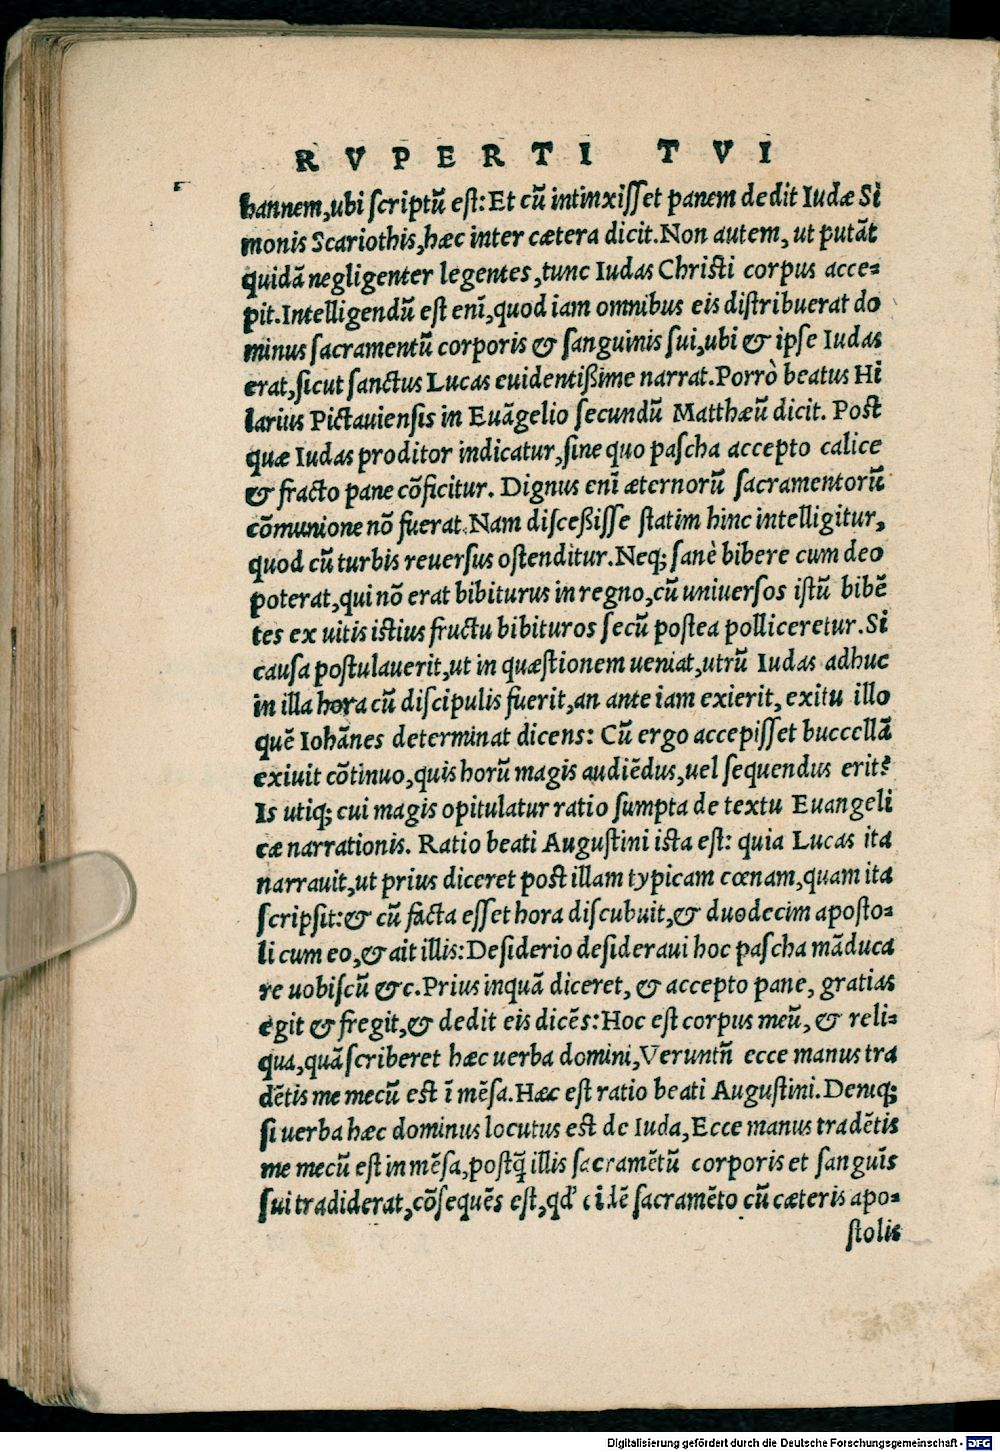 RVPERTI TVI
hannem,ubi scriptũ est: Et cũ intinxisset panem dedit Iudæ Si
monis Scariothis,hæc inter cætera dicit. Non autem, ut putãt
quidã negligenter legentes,tunc Iudas Christi corpus acce-
pit. Intelligendũ est enĩ,quod iam omnibus eis distribuerat do
minus sacramentũ corporis & sanguinis sui,ubi & ipse Iudas
erat,sicut sanctus Lucas euidentißime narrat. Porrò beatus Hi
larius Pictauiensis in Euãgelio secundũ Matthæũ dicit. Post
quæ Iudas proditor indicatur,sine quo pascha accepto calice
& fracto pane cõficitur. Dignus enĩ æternorũ sacramentorũ
cõmunione nõ fuerat. Nam disceßisse statim hinc intelligitur,
quod cũ turbis reuersus ostenditur. Neq; sanè bibere cum deo
poterat,qui nõ erat bibiturus in regno,cũ uniuersos istũ bibẽ
tes ex uitis istius fructu bibituros secũ postea polliceretur. Si
causa postulauerit,ut in quæstionem ueniat,utrũ Iudas adhuc
in illa hora cũ discipulis fuerit,an ante iam exierit, exitu illo
quẽ Iohãnes determinat dicens: Cũ ergo accepisset buccellã
exiuit cõtinuo,quis horũ magis audiẽdus,uel sequendus erit?
Is utiq; cui magis opitulatur ratio sumpta de textu Euangeli
cæ narrationis. Ratio beati Augustini ista est: quia Lucas ita
narrauit,ut prius diceret post illam typicam cœnam,quam ita
scripsit:& cũ facta esset hora discubuit,& duodecim aposto-
li cum eo,& ait illis: Desiderio desideraui hoc pascha mãduca
re uobiscũ &c. Prius inquã diceret, & accepto pane, gratias
egit & fregit,& dedit eis dicẽs: Hoc est corpus meũ, & reli-
qua,quã scriberet hæc uerba domini,Veruntñ ecce manus tra
dẽtis me mecũ est ĩ mẽsa. Hæc est ratio beati Augustini. Deniq;
si uerba hæc dominus locutus est de Iuda,Ecce manus tradẽtis
me mecũ est in mẽsa,postq̃ illis sacramẽtũ corporis et sanguĩs
sui tradiderat,cõsequẽs est,qd' eidẽ sacramẽto cũ cæteris apo-
stolis
Digitalisierung gefördert durch die Deutsche Forschungsgemeinschaft - DFG